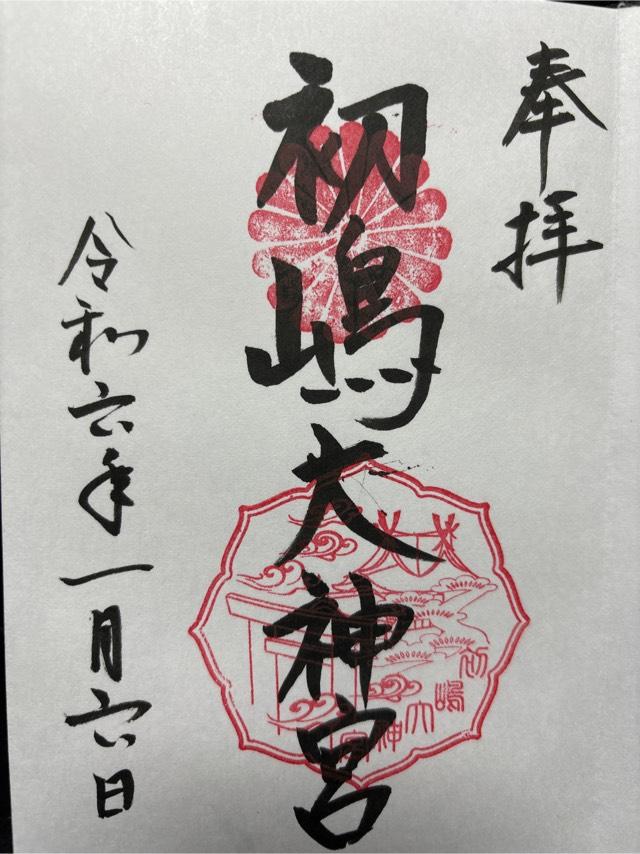 奉拝
初嶋大神宮
初嶋大神宮
令和六年一月六日